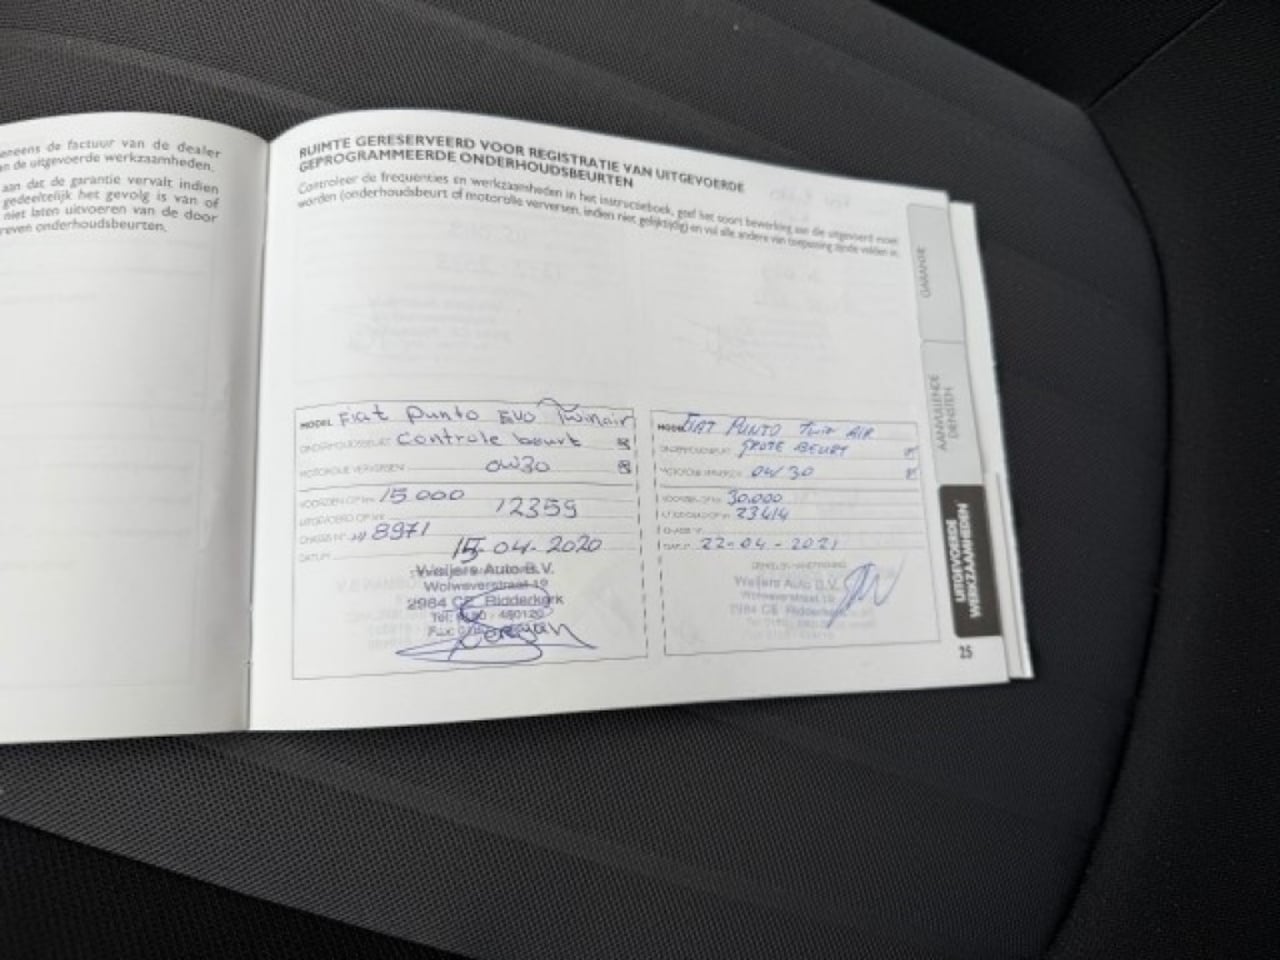 eneens de factuur van de dealer
n de uitgevoerde werkzaamheden.
aan dat de garantie vervalt indien
gedeeltelijk het gevolg is van of
niet laten uitvoeren van de door
reven onderhoudsbeurten.
RUIMTE GERESERVEERD VOOR REGISTRATIE VAN UITGEVOERDE
GEPROGRAMMEERDE ONDERHOUDSBEURTEN
Controleer de frequenties en werkzaamheden in het instructieboek, geef het soort bewerking aan die uitgevoerd moet
worden (onderhoudsbeurt of motorolie verversen, indien niet gelijktijdig) en vul alle andere van toepassing zijnde velden in.
MODEL Fiat Punto EVO Twinair
ONDERHOUDSBEURT Controle beurt
MOTOROLIE VERVERSEN 0W30
VOORZIEN OP km 15.000
UITGEVOERD OP km 12359
CHASSIS Nr. 8971
DATUM 15-04-2020
Weijers Auto B.V.
Wolweverstraat 19
2984 CE Ridderkerk
Tel: - 480120
Fax:
MODEL FIAT PUNTO Twin AIR
ONDERHOUDSBEURT GROTE BEURT
MOTOROLIE VERVERSEN 0W30
VOORZIEN OP km 30.000
UITGEVOERD OP km 23414
CHASSIS Nr.
DATUM 22-04-2021
Weijers Auto B.V.
Wolweverstraat 19
2984 CE Ridderkerk
GARANTIE
AANVULLENDE
DIENSTEN
UITGEVOERDE
WERKZAAMHEDEN
25